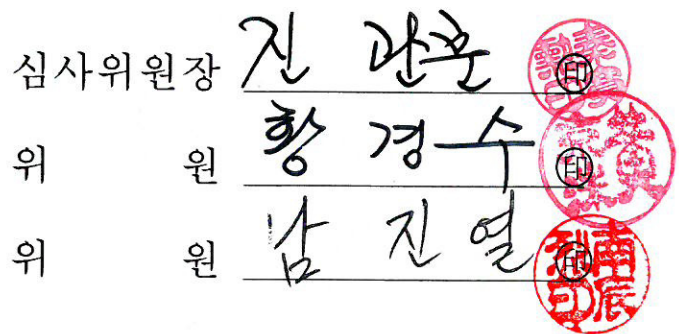 심사위원장 진 관훈 印
위 원 황 경수 印
위 원 남 진열 印